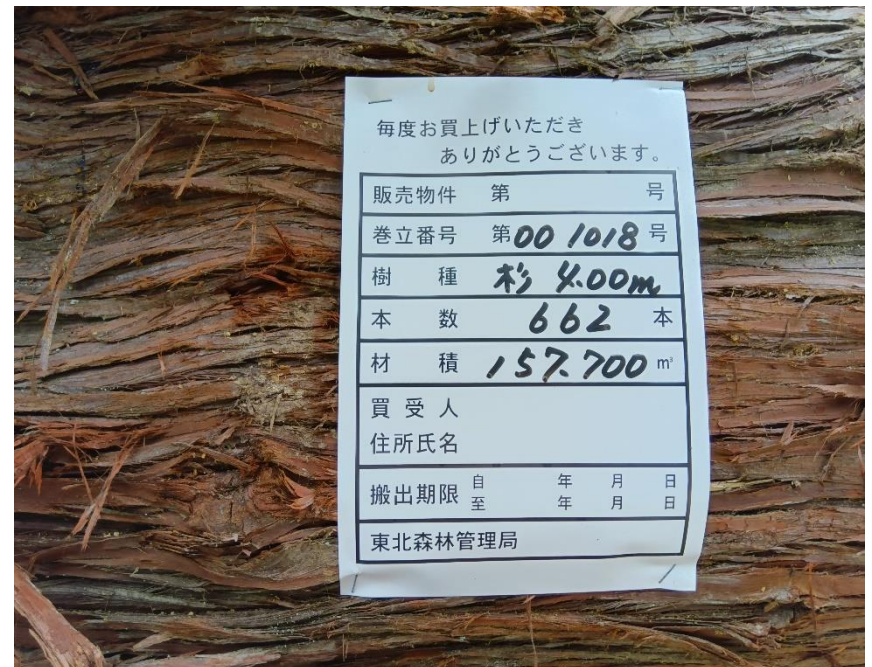 毎度お買上げいただき
ありがとうございます。
販売物件 第 号
巻立番号 第001018号
樹種 杉 4.00m
本数 662 本
材積 157.700 m³
買受人
住所氏名
搬出期限 自 年 月 日
至 年 月 日
東北森林管理局